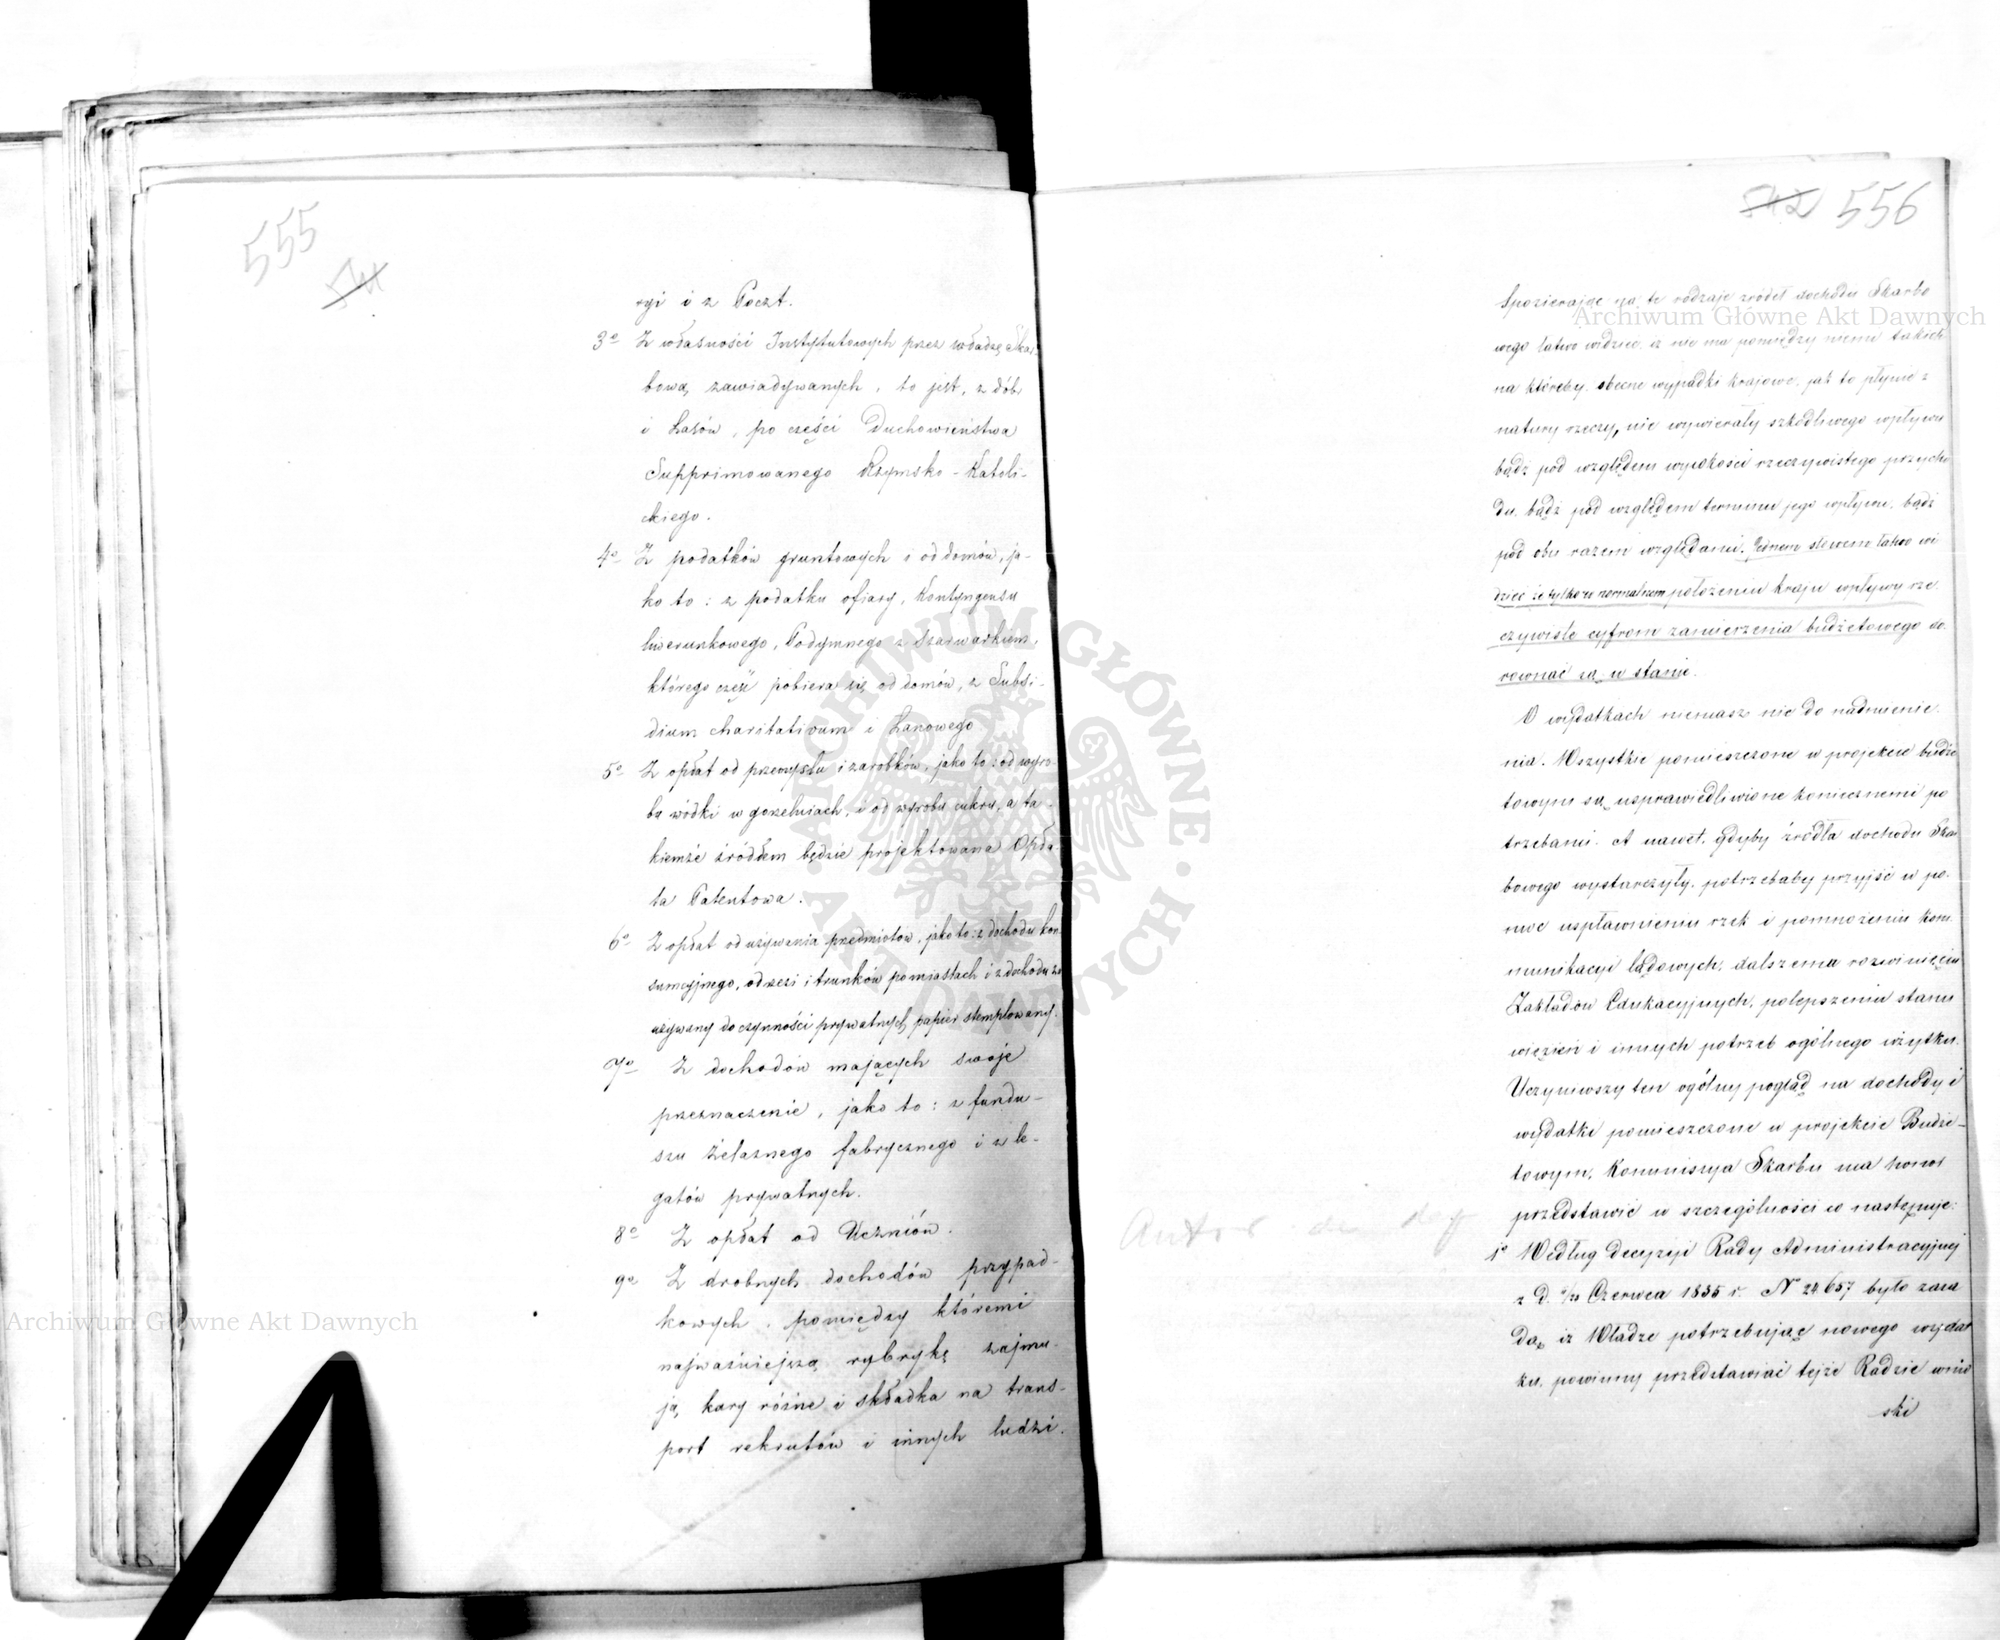 555
ryi i z Poczt.
3o Z własności Instytutowych przez władzę Skar-
bową zawiadywanych, to jest, z dób
i Lasów, po części Duchowieństwa
Supprimowanego Rzymsko-Katoli-
ckiego.
4o Z podatków gruntowych i od domów, ja-
ko to: z podatku ofiary, Kontyngensu
liwerunkowego, Podymnego z Szarwarkiem,
którego część pobiera się od domów, z Subsi-
dium charitativum i Łanowego
5o Z opłat od przemysłu i zarobków, jako to: od wyro-
bu wódki w gorzelniach, i od wyrobu cukru, a ta-
kiemże źródłem będzie projektowana Opła-
ta Patentowa.
6o Z opłat od używania przedmiotów, jako to: z dochodu kon
sumcyjnego, od rzezi i trunków po miastach i z dochodu za
używany do czynności prywatnych papier stemplowany.
7o Z dochodów mających swoje
przeznaczenie, jako to: z fundu-
szu żelaznego fabrycznego i z le-
gatów prywatnych.
8o Z opłat od Uczniów.
9o Z drobnych dochodów przypad-
kowych, pomiędzy któremi
najważniejszą rybrykę zajmu-
ją, kary różne i składka na trans-
port rekrutów i innych ludzi.
542 556
Spozierając na te rodzaje źródeł dochodu Skarbo
wego łatwo widzieć, iż nie ma pomiędzy niemi takich
na któreby obecne wypadki krajowe, jak to płynie z
natury rzeczy, nie wywierały szkodliwego wpływu
bądź pod względem wysokości rzeczywistego przycho
du, bądź pod względem terminu jego wpływu, bądź
pod obu razem względami. Jednem słowem łatwo wi
dzieć że tylko w normalnem położeniu kraju wpływy rze
czywiste cyfrom zamierzenia budżetowego do
rownać są w stanie.
O wydatkach niemasz nic do nadmienie
nia. Wszystkie pomieszczone w projekcie budże
towym są usprawiedliwione koniecznemi po
trzebami. A nawet, gdyby źródła dochodu Skar
bowego wystarczyły, potrzebaby przyjść w po
moc uspławnieniu rzek i pomnożeniu kom
munikacyi lądowych, dalszemu rozwinięciu
Zakładów Edukacyjnych, polepszeniu stanu
więzień i innych potrzeb ogólnego użytku.
Uczyniwszy ten ogólny pogląd na dochody i
wydatki pomieszczone w projekcie Budże-
towym, Kommissya Skarbu ma honor
przedstawić w szczególności co następuje:
1o Według decyzyi Rady Administracyjnej
z D. Czerwca 1835 r. No 24.657 było zasa
dą, iż Władze potrzebujące nowego wydat
ku, powinny przedstawiać tejże Radzie wnio
ski
Archiwum Główne Akt Dawnych
Archiwum Główne Akt Dawnych
ARCHIWUM GŁÓWNE AKT DAWNYCH